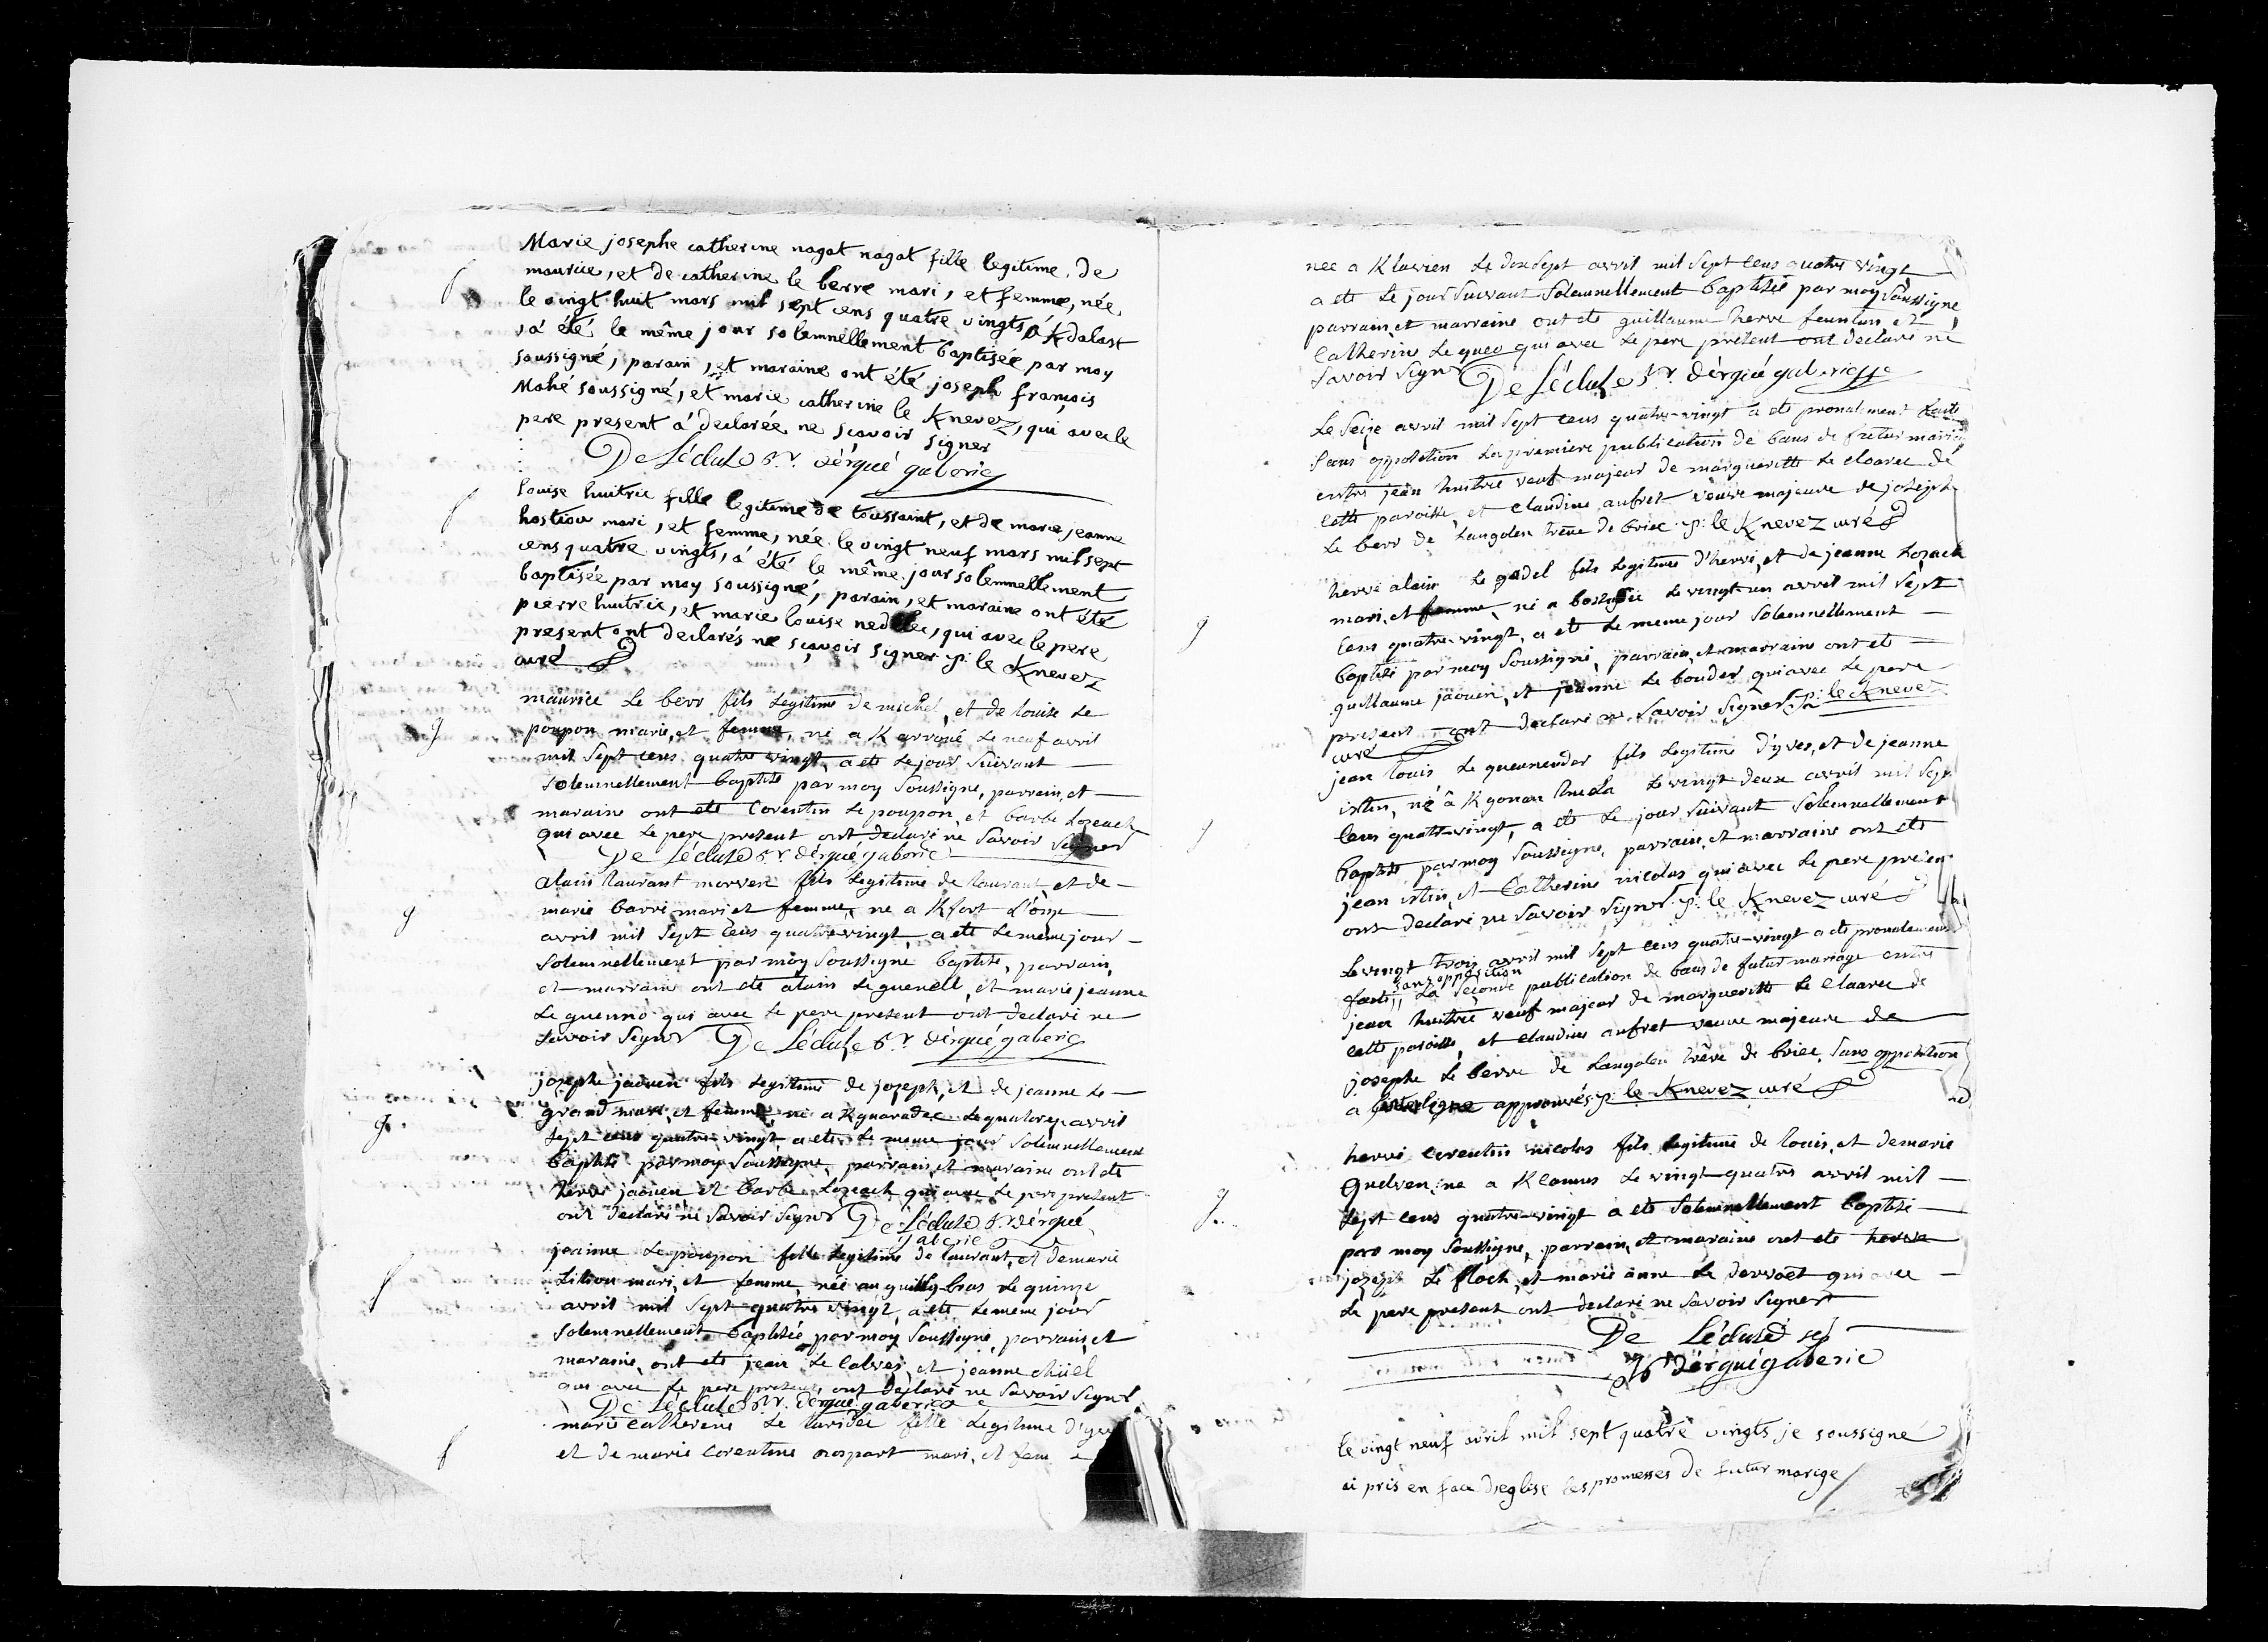 Marie josephe catherine nagat nagat fille legitime de
maurice, et de catherine le berre mari, et femme, née
le vingt huit mars mil sept cens quatre vingts á Kdalast
, á été le même jour solemnellement baptisée par moy
soussigné, parain, et maraine ont été joseph françois
Mahé soussigné, et marie catherine le Knevez, qui avec le
pere present á declarée ne sçavoir signer
De Lécluse r. dérgué gaberic
f
louise huitric fille legitime de toussaint, et de marie jeanne
hostiou mari, et femme, née le vingt neuf mars mil sept
cens quatre vingts, á été le même jour solemnellement
baptisée par moy soussigné, parain, et maraine ont été
pierre huitric, et marie louise nedelec, qui avec le pere
present ont declarés ne sçavoir signer p: le Knevez
curé
f
maurice Le berr fils Legitime de michel, et de louise Le
poupon marie, et femme, né a K arroué Le neuf avril
mil Sept cens quatre vingt, a ete Le jour Suivant
solemnellement baptisé par moy Soussigne, parrain, et
maraine ont ete Corentin Le poupon, et barbe Lozeach
qui avec Le pere present ont declaré ne Savoir Signer
De Lécluse r. dérgué gaberic
g
alain laurant morvan fils Legitime de laurant, et de
marie barré mari et femme, ne a Kfort L'onze
avril mil Sept Cens quatre vingt, a ete Le meme jour
Solemnellement par moy Soussigne baptisé, parrain,
et marraine ont ete alain Le guenell, et marie jeanne
Le guenno qui avec Le pere present ont declaré ne
Savoir Signer De Lécluse r. dérgué gaberic
g
jozeph jaouen fils Legitime de jozeph, et de jeanne Le
grand mari, et femme, né a Kguaradec Le quatorze avril
Sept cens quatre vingt a ete Le meme jour Solemnellement
baptisé par moy Soussigne, parrain, et maraine ont ete
herve jaouen et barbe Lozeach qui avec Le pere present
ont declaré ne Savoir Signer De Lécluse r. dérgué
gaberic
g.
jeanne Le poupon fille Legitime de laurant, et de marie
Litiou mari, et femme, née au guilly bras Le quinze
avril mil Sept quatre vingt, a ete Le meme jour
Solemnellement baptisée par moy Soussigné, parrain, et
maraine, ont ete jean Le Calvez, et jeanne
qui avec Le pere present, ont declaré ne Savoir Signer
De Lécluse r. dérgué gaberic
f
marie catherine Le fille Legitime d'yves
et de marie Corentine rospart mari, et fem
f
née a Klavien Le dix Sept avril mil Sept Cens quatre vingt
a ete Le jour Suivant Solemnellement baptisée par moy Soussigne
parrain, et marraine ont ete guillaume herve feunteun, et
Catherine Le queo qui avec Le pere present ont declaré ne
Savoir Signer De Lécluse r. dérgué gaberic
Le Seize avril mil Sept cens quatre-vingt a ete pronalement faite
Sans opposition La premiere publication de bans de futur mariage
entre jean huitric veuf majeur de margueritte Le cloarec de
cette paroisse, et claudine aufret veuve majeure de joseph
Le berr de Langolen trêve de briec p: le Knevez curé
hervé alain Le godel fils Legitime d'hervé, et de jeanne Lozach
mari, et femme, né a Le vingt-un avril mil Sept
Cens quatre-vingt, a ete Le meme jour Solemnellement
baptisé par moy Soussigné, parrain, et marraine ont ete
guillaume jaouen, et jeanne Le bouder qui avec Le pere
present ont declaré ne Savoir Signer p: le Knevez
curé
g
jean louis Le queneudec fils Legitime d'yves, et de jeanne
istin, né â Kgonan Le vingt deux avril mil Sept
Cens quatre-vingt, a ete Le jour Suivant Solemnellement
baptisé par moy Soussigne, parrain, et marraine ont ete
jean istin, et Catherine nicolas qui avec Le pere present
ont declaré ne Savoir Signer p: le Knevez curé
g
Le vingt trois avril mil Sept Cens quatre-vingt a ete pronalement
faite sans opposition La Seconde publication de bans de futur mariage entre
jean huitric veuf majeur de margueritte Le Cloarec de
cette paroisse, et claudine aufret veuve majeure de
josephe Le berre de Langolen trêve de briec, Sans opposition
a approuvés p: le Knevez curé
hervé Corentin nicolas fils Legitime de louis, et de marie
quelven, ne a Kleonus Le vingt-quatre avril mil
Sept cens quatre-vingt a ete Solemnellement baptisé
par moy Soussigne, parrain, et maraine ont ete herve
jozeph Le floch, et marie anne Le dervoët qui avec
Le pere present, ont declaré ne Savoir Signer
De Lécluse
r dérgué gaberic
g
le vingt neuf avril mil sept quatre vingts je soussigné
ai pris en face d'eglise les promesses de futur marige